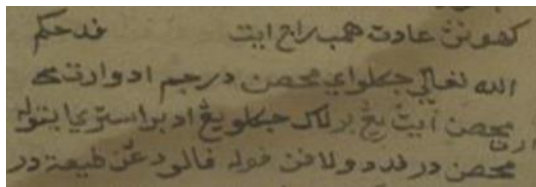 كهوننن عادت همب راج ايت فد حكم
الله تعالى جكلواى محصن درجم ادوارث
محصن ايت يڠ برلاك جكلو يڠ اد براسترى ايتوله
محصن در فد دولا فن فوله فالو دڠن طبيعة در